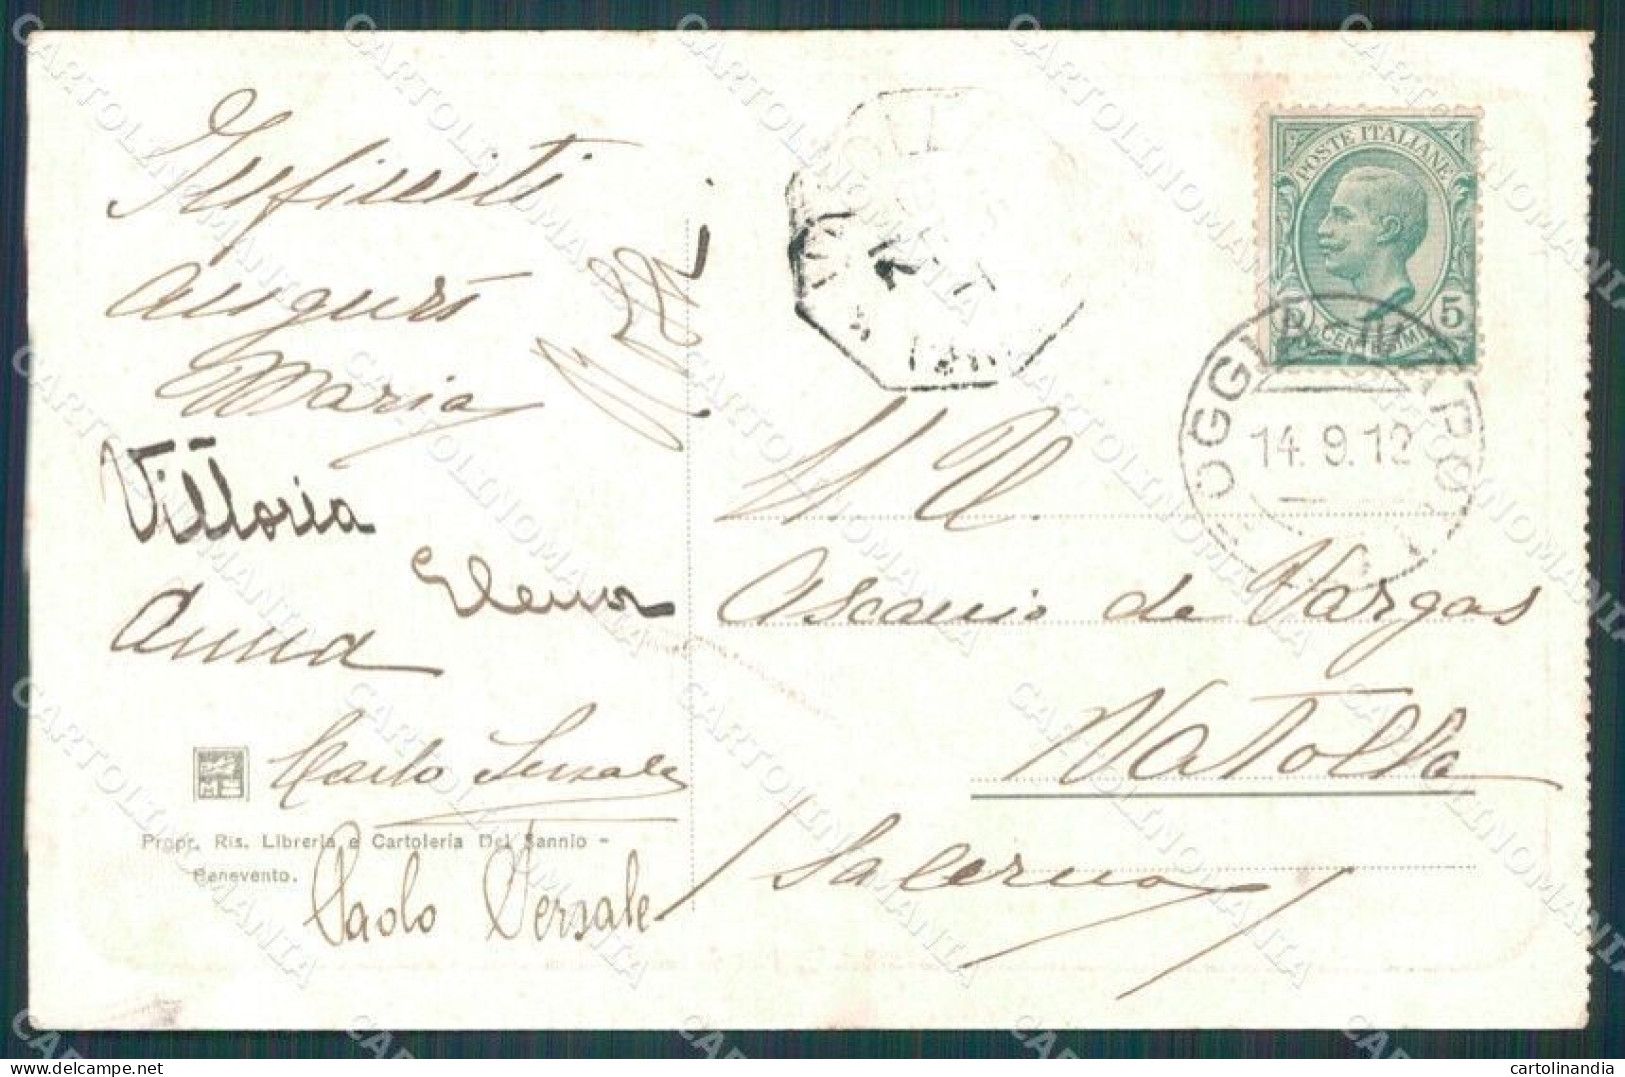 Infiniti
auguri
Maria
Vittoria
Elena
Anna
Carlo
Propr. Ris. Libreria e Cartoleria Del Sannio -
Benevento.
Paolo Versale
POSTE ITALIANE
5
CENTESIMI
14.9.12
Ascanio de Vargas
Vatolla
Salerno
CARTOLINOMANIA
delcampe.net
cartolinandia